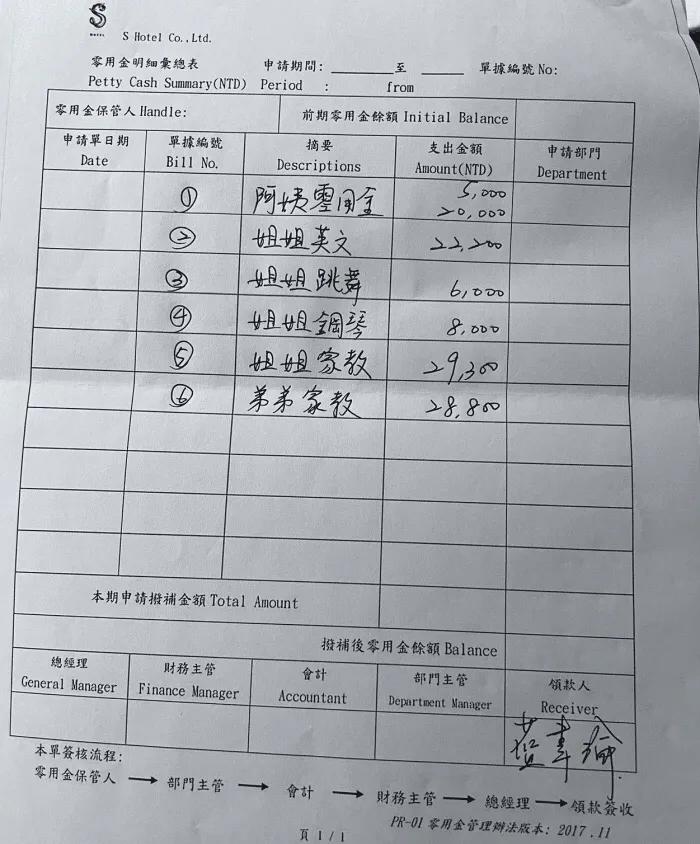 S
HOTEL
S Hotel Co.,Ltd.
零用金明細彙總表 申請期間: ________至 _____ 單據編號 No:
Petty Cash Summary(NTD) Period : from
零用金保管人 Handle: 前期零用金餘額 Initial Balance
申請單日期 單據編號 摘要 支出金額 申請部門
Date Bill No. Descriptions Amount(NTD) Department
① 阿姨零用金 5,000
20,000
② 姐姐英文 22,200
③ 姐姐跳舞 6,000
④ 姐姐鋼琴 8,000
⑤ 姐姐家教 29,300
⑥ 弟弟家教 28,800
本期申請撥補金額 Total Amount
撥補後零用金餘額 Balance
總經理 財務主管 會計 部門主管 領款人
General Manager Finance Manager Accountant Department Manager Receiver
本單簽核流程:
零用金保管人 → 部門主管 → 會計 → 財務主管 → 總經理 → 領款簽收
PR-01 零用金管理辦法版本: 2017.11
頁 1 / 1